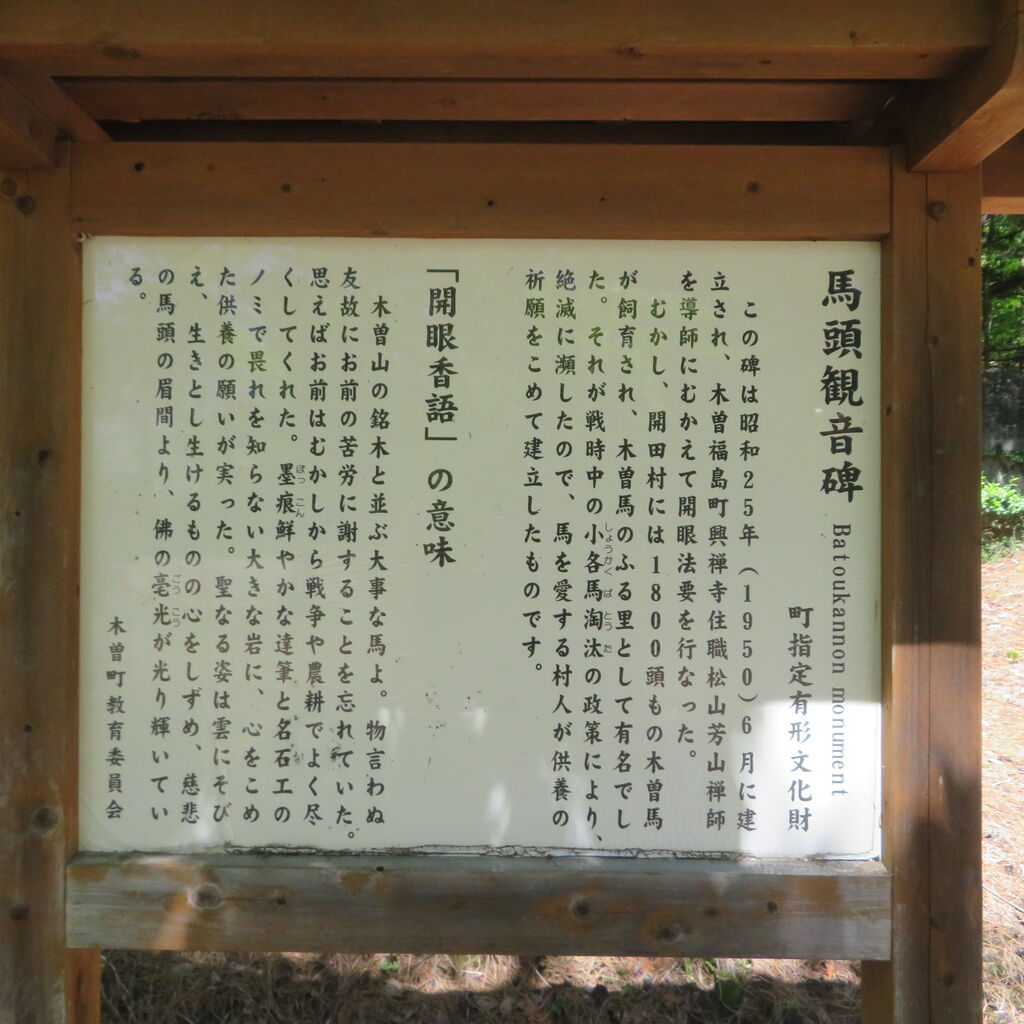 馬頭観音碑 Batoukannon monument
町指定有形文化財
この碑は昭和25年(1950)6月に建
立され、木曽福島町興禅寺住職松山芳山禅師
を導師にむかえて開眼法要を行なった。
むかし、開田村には1800頭もの木曽馬
が飼育され、木曽馬のふる里として有名でし
た。それが戦時中の小各馬淘汰の政策により、
しょうかくばとうた
絶滅に瀕したので、馬を愛する村人が供養の
祈願をこめて建立したものです。
「開眼香語」の意味
木曽山の銘木と並ぶ大事な馬よ。物言わぬ
友故にお前の苦労に謝することを忘れていた。
思えばお前はむかしから戦争や農耕でよく尽
くしてくれた。墨痕鮮やかな達筆と名石工の
ぼっこん
ノミで畏れを知らない大きな岩に、心をこめ
た供養の願いが実った。聖なる姿は雲にそび
え、生きとし生けるものの心をしずめ、慈悲
の馬頭の眉間より、佛の毫光が光り輝いてい
ごうこう
る。
木曽町教育委員会